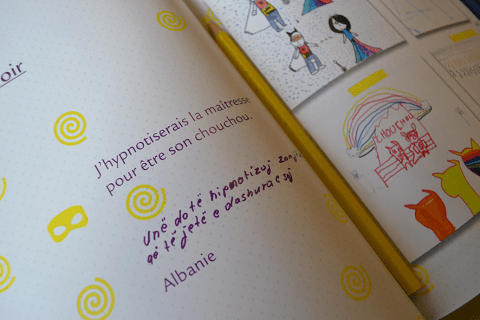 oir
J'hypnotiserais la maîtresse
pour être son chouchou.
Unë do të hipnotizoj
që të jetë e dashura
Albanie
CHOUCHOU